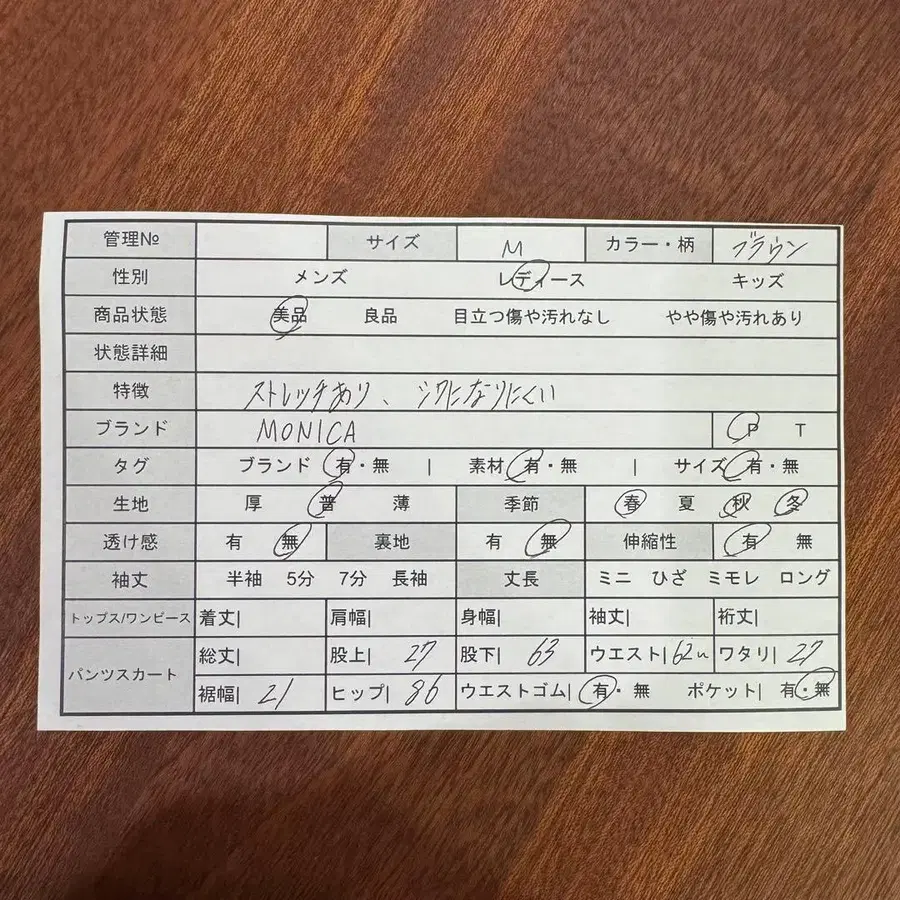 管理№ サイズ M カラー・柄 ブラウン
性別 メンズ レディース キッズ
商品状態 美品 良品 目立つ傷や汚れなし やや傷や汚れあり
状態詳細
特徴 ストレッチあり、シワになりにくい
ブランド MONICA P T
タグ ブランド 有・無 | 素材 有・無 | サイズ 有・無
生地 厚 普 薄 季節 春 夏 秋 冬
透け感 有 無 裏地 有 無 伸縮性 有 無
袖丈 半袖 5分 7分 長袖 丈長 ミニ ひざ ミモレ ロング
トップス/ワンピース 着丈| 肩幅| 身幅| 袖丈| 裄丈|
パンツスカート 総丈| 股上| 27 股下| 63 ウエスト| 62 ワタリ| 27
裾幅| 21 ヒップ| 86 ウエストゴム| 有・無 ポケット| 有・無